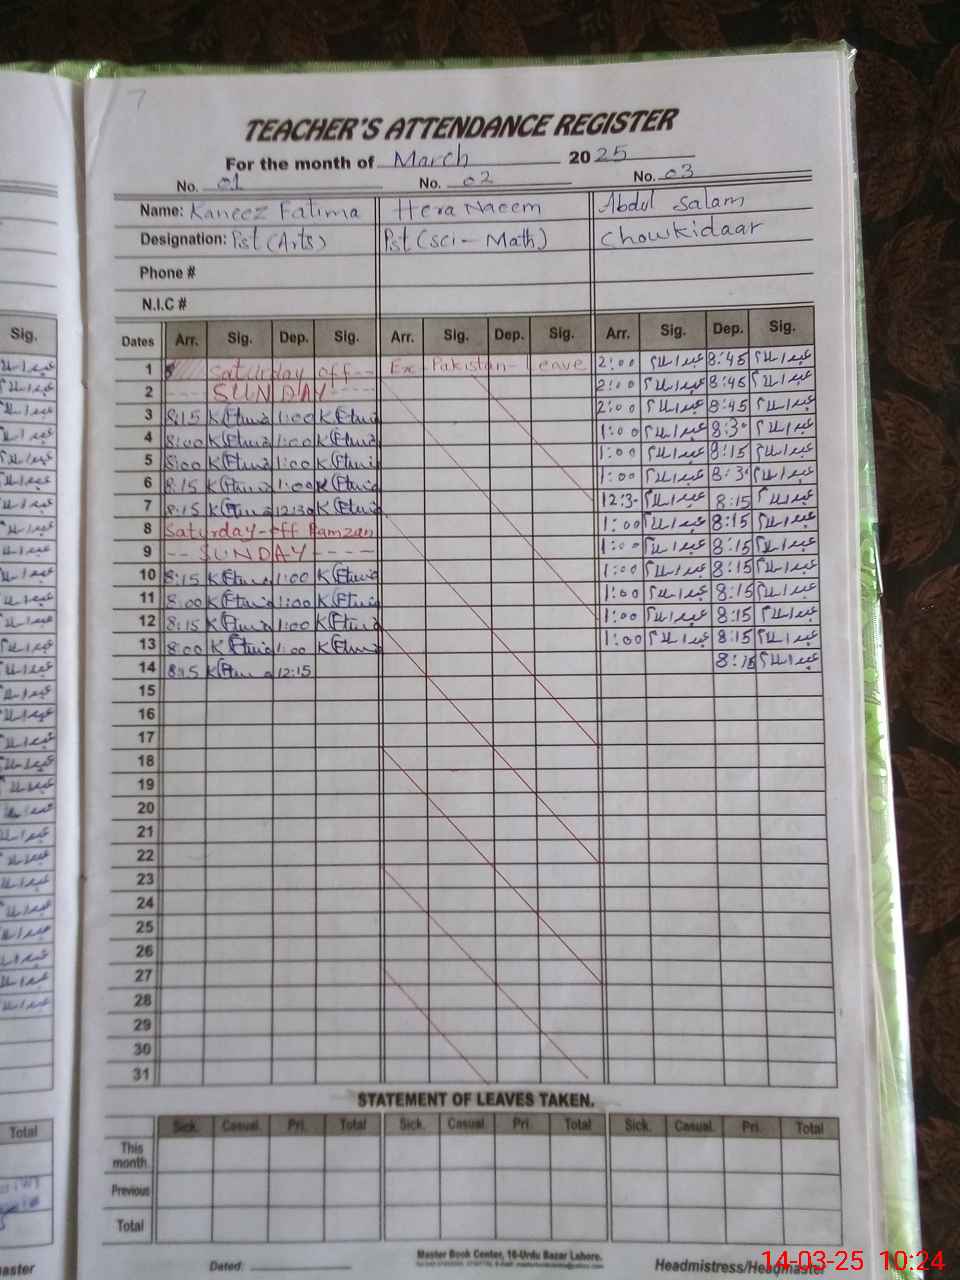 7
TEACHER'S ATTENDANCE REGISTER
For the month of March 2025
No. 01 No. 02 No. 03
Name: Kaneez Fatima Hera Naeem Abdul Salam
Designation: Pst (Arts) Pst (Sci - Math) Chowkidaar
Phone #
N.I.C #
Sig. Dates Arr. Sig. Dep. Sig. Arr. Sig. Dep. Sig. Arr. Sig. Dep. Sig.
1 Saturday off-- Ex-Pakistan-Leave 2:00 عبدالسلام 8:45 عبدالسلام
2 ---- SUNDAY ---- 2:00 عبدالسلام 8:45 عبدالسلام
3 8:15 1:00 2:00 عبدالسلام 8:45 عبدالسلام
4 8:00 1:00 1:00 عبدالسلام 8:30 عبدالسلام
5 8:00 1:00 1:00 عبدالسلام 8:15 عبدالسلام
6 8:15 1:00 1:00 عبدالسلام 8:3 عبدالسلام
7 8:15 12:30 12:3- عبدالسلام 8:15 عبدالسلام
8 Saturday-off Ramzan 1:00 عبدالسلام 8:15 عبدالسلام
9 -- SUNDAY ---- 1:00 عبدالسلام 8:15 عبدالسلام
10 8:15 1:00 1:00 عبدالسلام 8:15 عبدالسلام
11 8:00 1:00 1:00 عبدالسلام 8:15 عبدالسلام
12 8:15 1:00 1:00 عبدالسلام 8:15 عبدالسلام
13 8:00 1:00 1:00 عبدالسلام 8:15 عبدالسلام
14 8:15 12:15 8:15 عبدالسلام
15
16
17
18
19
20
21
22
23
24
25
26
27
28
29
30
31
STATEMENT OF LEAVES TAKEN.
Total Sick. Casual. Pri. Total Sick. Casual Pri. Total Sick. Casual. Pri. Total
This month.
Previous
Total
Master Book Center, 16-Urdu Bazar Lahore.
master Dated: Headmistress/Headmaster
14-03-25 10:24